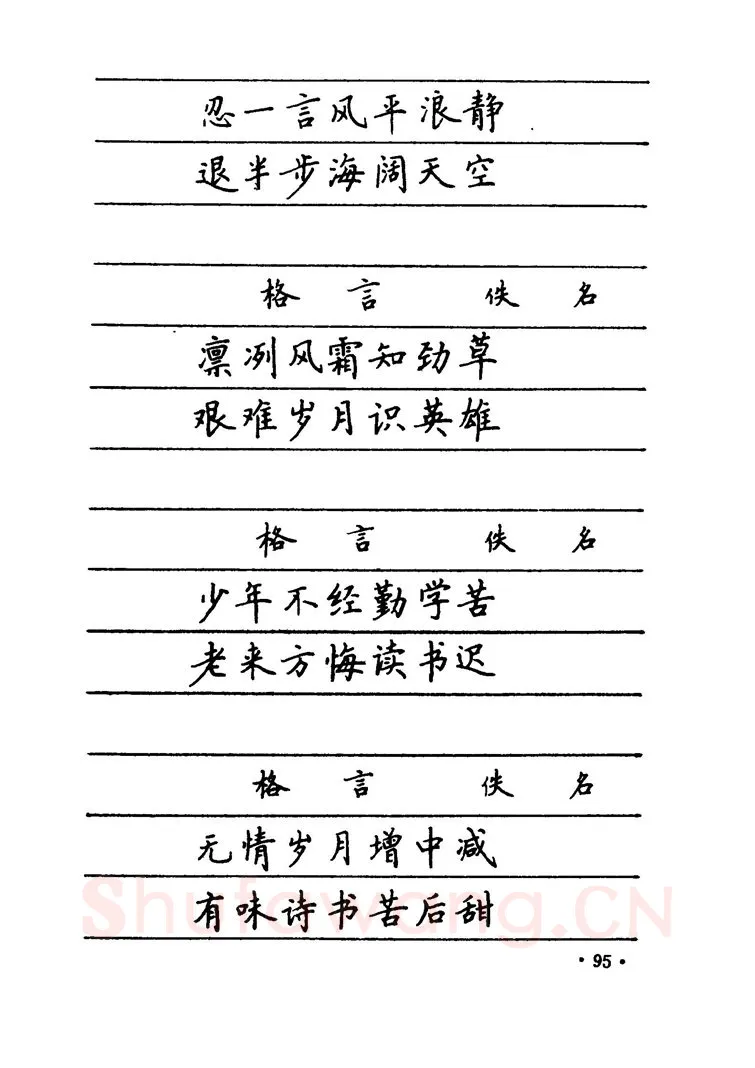 忍一言风平浪静
退半步海阔天空
格言 佚名
凛冽风霜知劲草
艰难岁月识英雄
格言 佚名
少年不经勤学苦
老来方悔读书迟
格言 佚名
无情岁月增中减
有味诗书苦后甜
Shufawang.CN
·95·